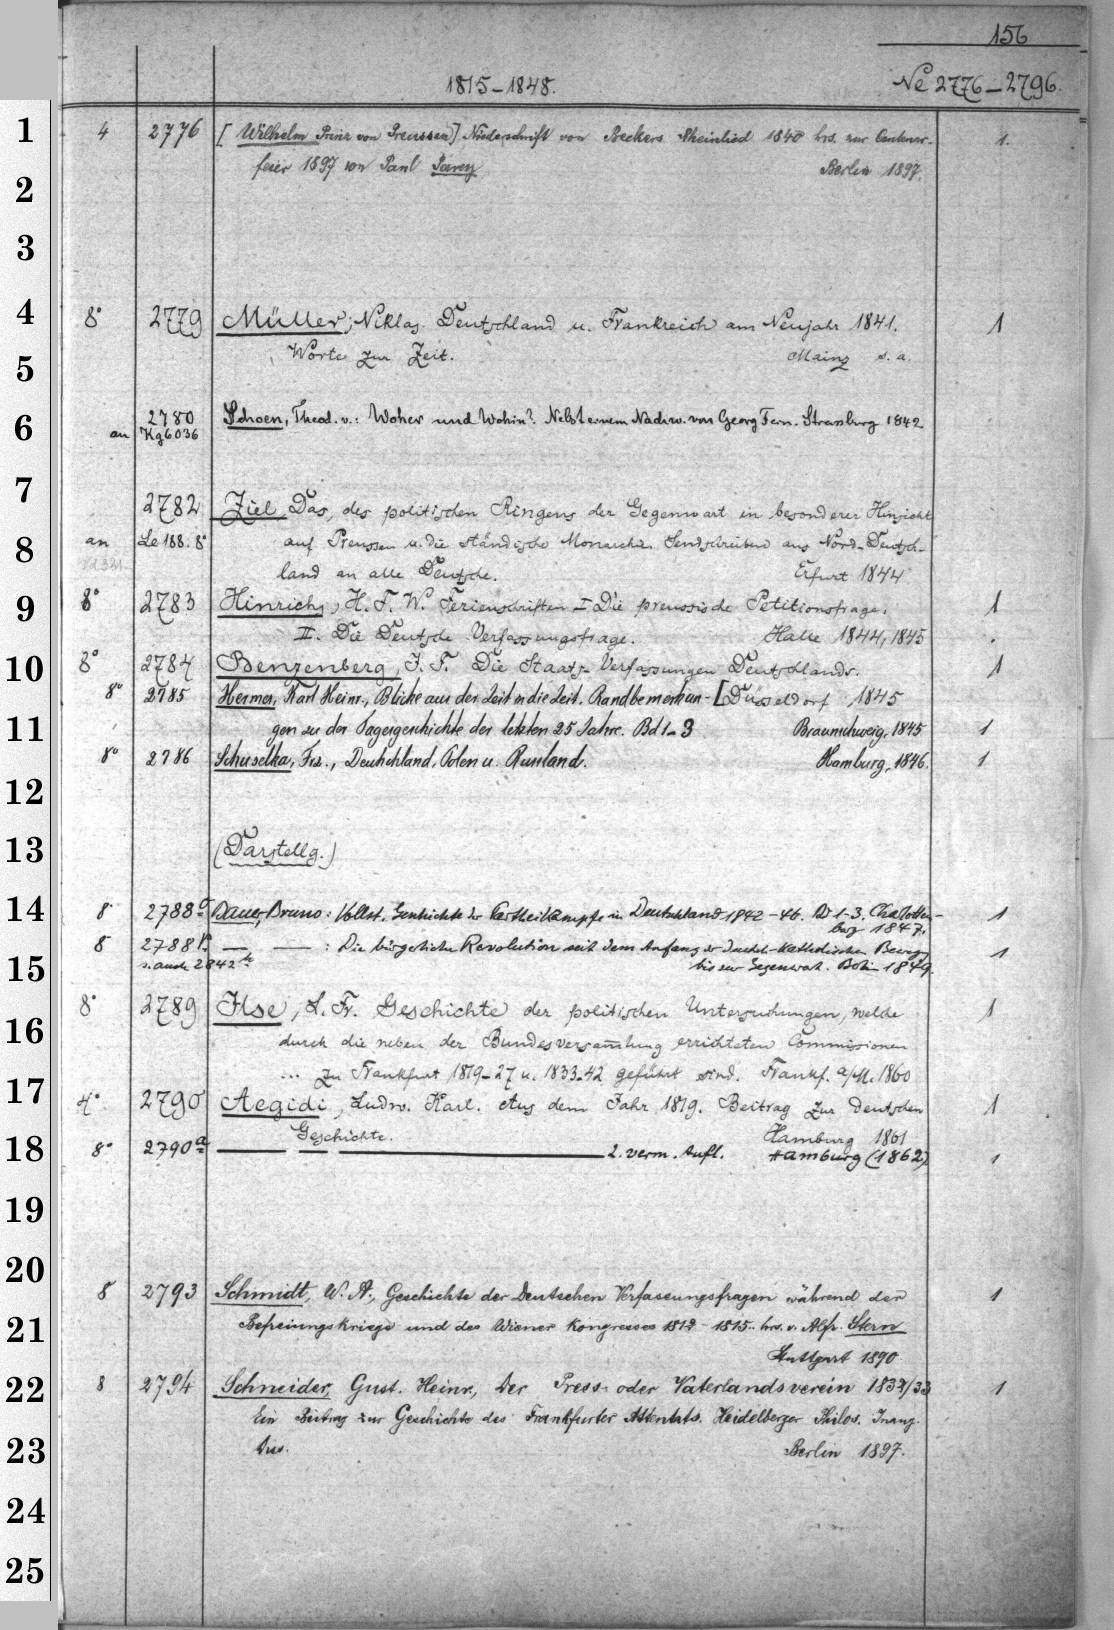 156
1815-1848.
Ne 2776-2796.
1
4 2776 [Wilhelm Prinz von Preussen] Niederschrift von Beckers Rheinlied 1840 hrs. zur Centenar- 1.
feier 1897 von Paul Parey Berlin 1897.
2
3
4
8° 2779 Müller, Niklas. Deutschland u. Frankreich am Neujahr 1841. 1
Worte zur Zeit. Mainz s. a.
5
6
2780 Schoen, Theod. v.: Woher und Wohin? Nebst einem Nachw. von Georg Fein. Strassburg 1842
an Kg 6036
7
2782 Ziel, Das, des politischen Ringens der Gegenwart in besonderer Hinsicht
8
an Le 188. 8° auf Preussen u. die ständische Monarchie. Sendschreiben aus Nord-Deutsch-
land an alle Deutsche. Erfurt 1844
9
8° 2783 Hinrichs, H. F. W. Ferienschriften I Die preussische Petitionsfrage. 1
II. Die Deutsche Verfassungsfrage. Halle 1844, 1845
10
8° 2784 Benzenberg, J. F. Die Staats-Verfassungen Deutschlands. 1
8° 2785 Hermes, Karl Heinr., Blicke aus der Zeit in die Zeit. Randbemerkun- [Düsseldorf 1845
11
gen zu der Tagesgeschichte der letzten 25 Jahre. Bd 1-3 Braunschweig, 1845 1
8° 2786 Schuselka, Frz., Deutschland, Polen u. Russland. Hamburg, 1846. 1
12
13
(Darstellg.)
14
8° 2788a Bauer, Bruno: Vollst. Geschichte der Partheikämpfe in Deutschland 1842-46. Bd 1-3. Charlotten- 1
burg 1847.
8 2788b — — : Die bürgerliche Revolution seit dem Anfang der deutsch-katholischen Bewegg 1
15
s. auch 2842 bis zur Gegenwart. Berlin 1849.
8° 2789 Ilse, L. Fr. Geschichte der politischen Untersuchungen, welche 1
16
durch die neben der Bundesversammlung errichteten Commissionen
... zu Frankfurt 1819-27 u. 1833-42 geführt sind. Frankf. a/M. 1860
17
4° 2790 Aegidi, Ludw. Karl. Aus dem Jahr 1819. Beitrag zur deutschen 1
Geschichte. Hamburg 1861
18
8° 2790a — — — 2. verm. Aufl. Hamburg (1862) 1
19
20
8 2793 Schmidt, W. A., Geschichte der Deutschen Verfassungsfragen während der 1
21
Befreiungskriege und des Wiener Kongresses 1812-1815. hrs. v. Alfr. Stern
Stuttgart 1890
22
8 2794 Schneider, Gust. Heinr., Der Press- oder Vaterlandsverein 1832/33 1
Ein Beitrag zur Geschichte des Frankfurter Attentats. Heidelberger Philos. Inaug.
23
Diss. Berlin 1897.
24
25